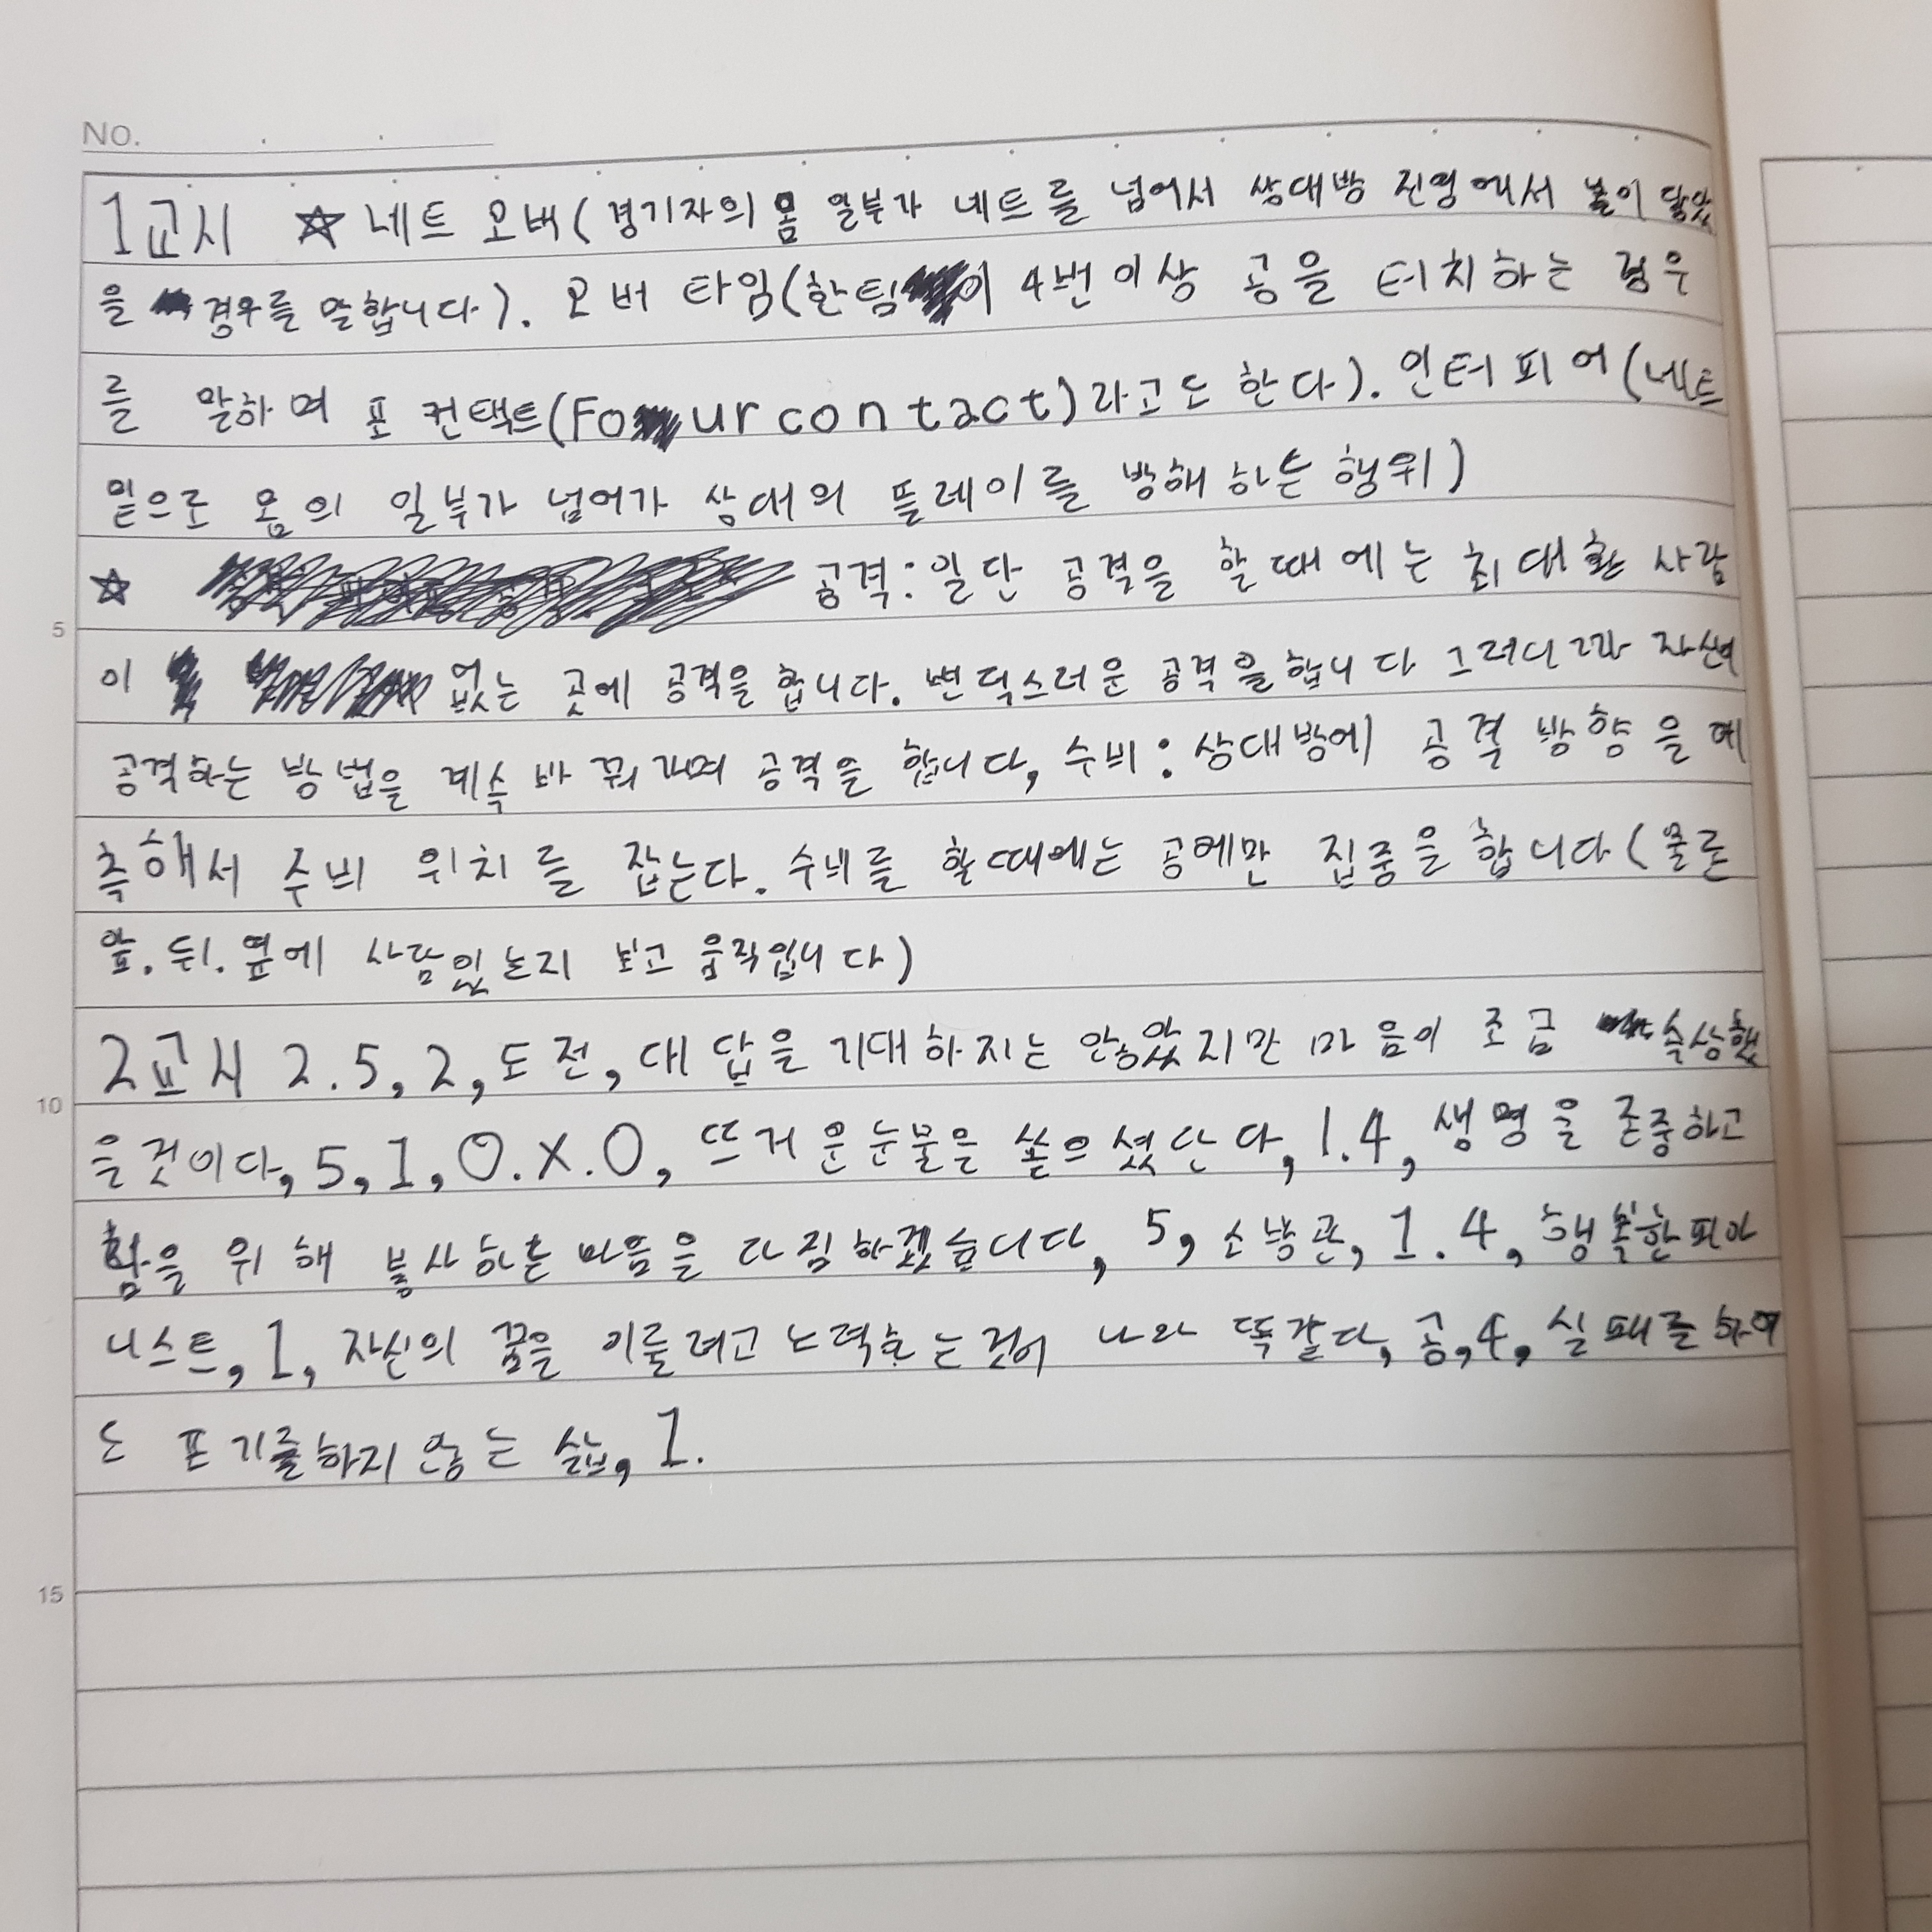 No.
1교시 ☆ 네트 오버(경기자의 몸 일부가 네트를 넘어서 상대방 진영에서 볼이 닿았
을 경우를 말합니다). 오버 타임(한팀이 4번이상 공을 터치하는 경우
를 말하며 포 컨택트(Four contact)라고도 한다). 인터피어(네트
밑으로 몸의 일부가 넘어가 상대의 플레이를 방해하는 행위)
☆ 공격:일단 공격을 할때에는 최대한 사람
5
이 없는 곳에 공격을 합니다. 변덕스러운 공격을합니다 그러니까
공격하는 방법을 계속 바꿔가며 공격을 합니다, 수비:상대방에 공격 방향을 예
측해서 수비 위치를 잡는다. 수비를 할때에는 공에만 집중을 합니다(물론
앞.뒤.옆에 사람있는지 보고 움직입니다)
2교시 2.5,2,도전,대답을 기대하지는 않았지만 마음이 조급
10
을것이다,5,1,O.X.O,뜨거운눈물을 쏟으셨단다,1.4,생명을 존중하고
위해 봉사하는 마음을 다짐하겠습니다, 5,소방관,1.4,행복한피아
니스트,1,자신의 꿈을 이룰려고 노력하는것이 나와 똑같다,공,4,실패를하여
도 포기를하지 않는 삶,1.
15